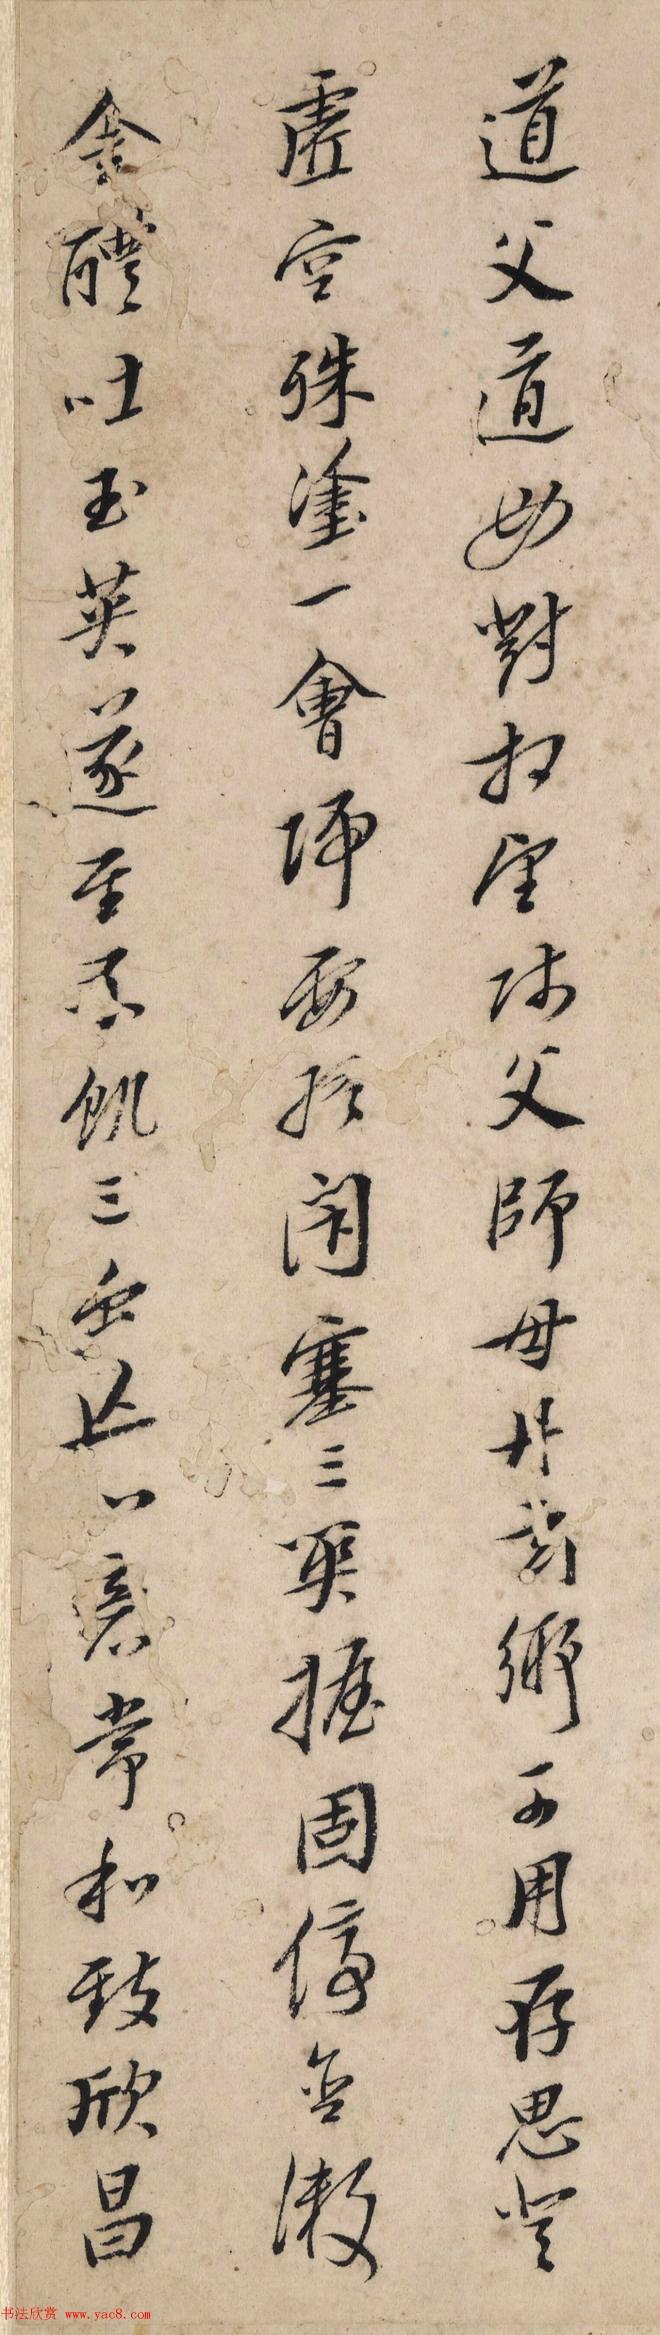 道父道母對相望師父師母丹玄鄉可用存思登
虛空殊塗一會歸要終閉塞三關握固停含漱
金醴吐玉英遂至不飢三虫亡心意常和致欣昌
书法欣赏 www.yac8.com